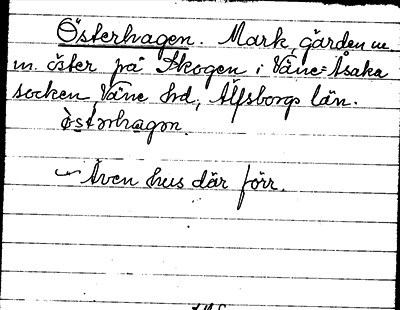 Österhagen. Mark, gården m.
m. öster på Skogen i Väne-Åsaka
socken, Väne hd, Älfsborgs län.
òsterhagen.
Även hus där förr.